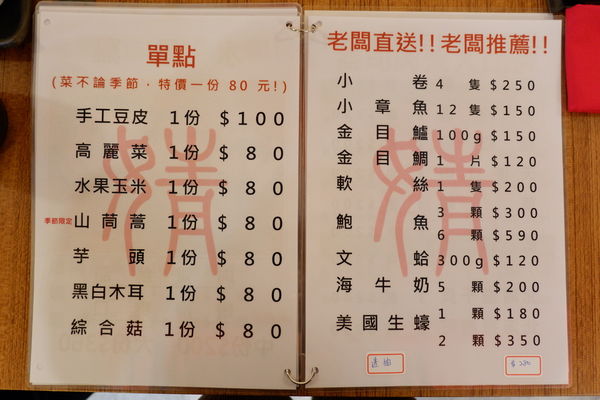 單點
(菜不論季節．特價一份 80 元!)
手工豆皮 1份 $100
高麗菜 1份 $80
水果玉米 1份 $80
季節限定 山茼蒿 1份 $80
芋頭 1份 $80
黑白木耳 1份 $80
綜合菇 1份 $80
老闆直送!! 老闆推薦!!
小卷 4 隻 $250
小章魚 12 隻 $150
金目鱸 100g $150
金目鯛 1 片 $120
軟絲 1 隻 $200
鮑魚 3 顆 $300
6 顆 $590
文蛤 300g $120
海牛奶 5 顆 $200
美國生蠔 1 顆 $180
2 顆 $350